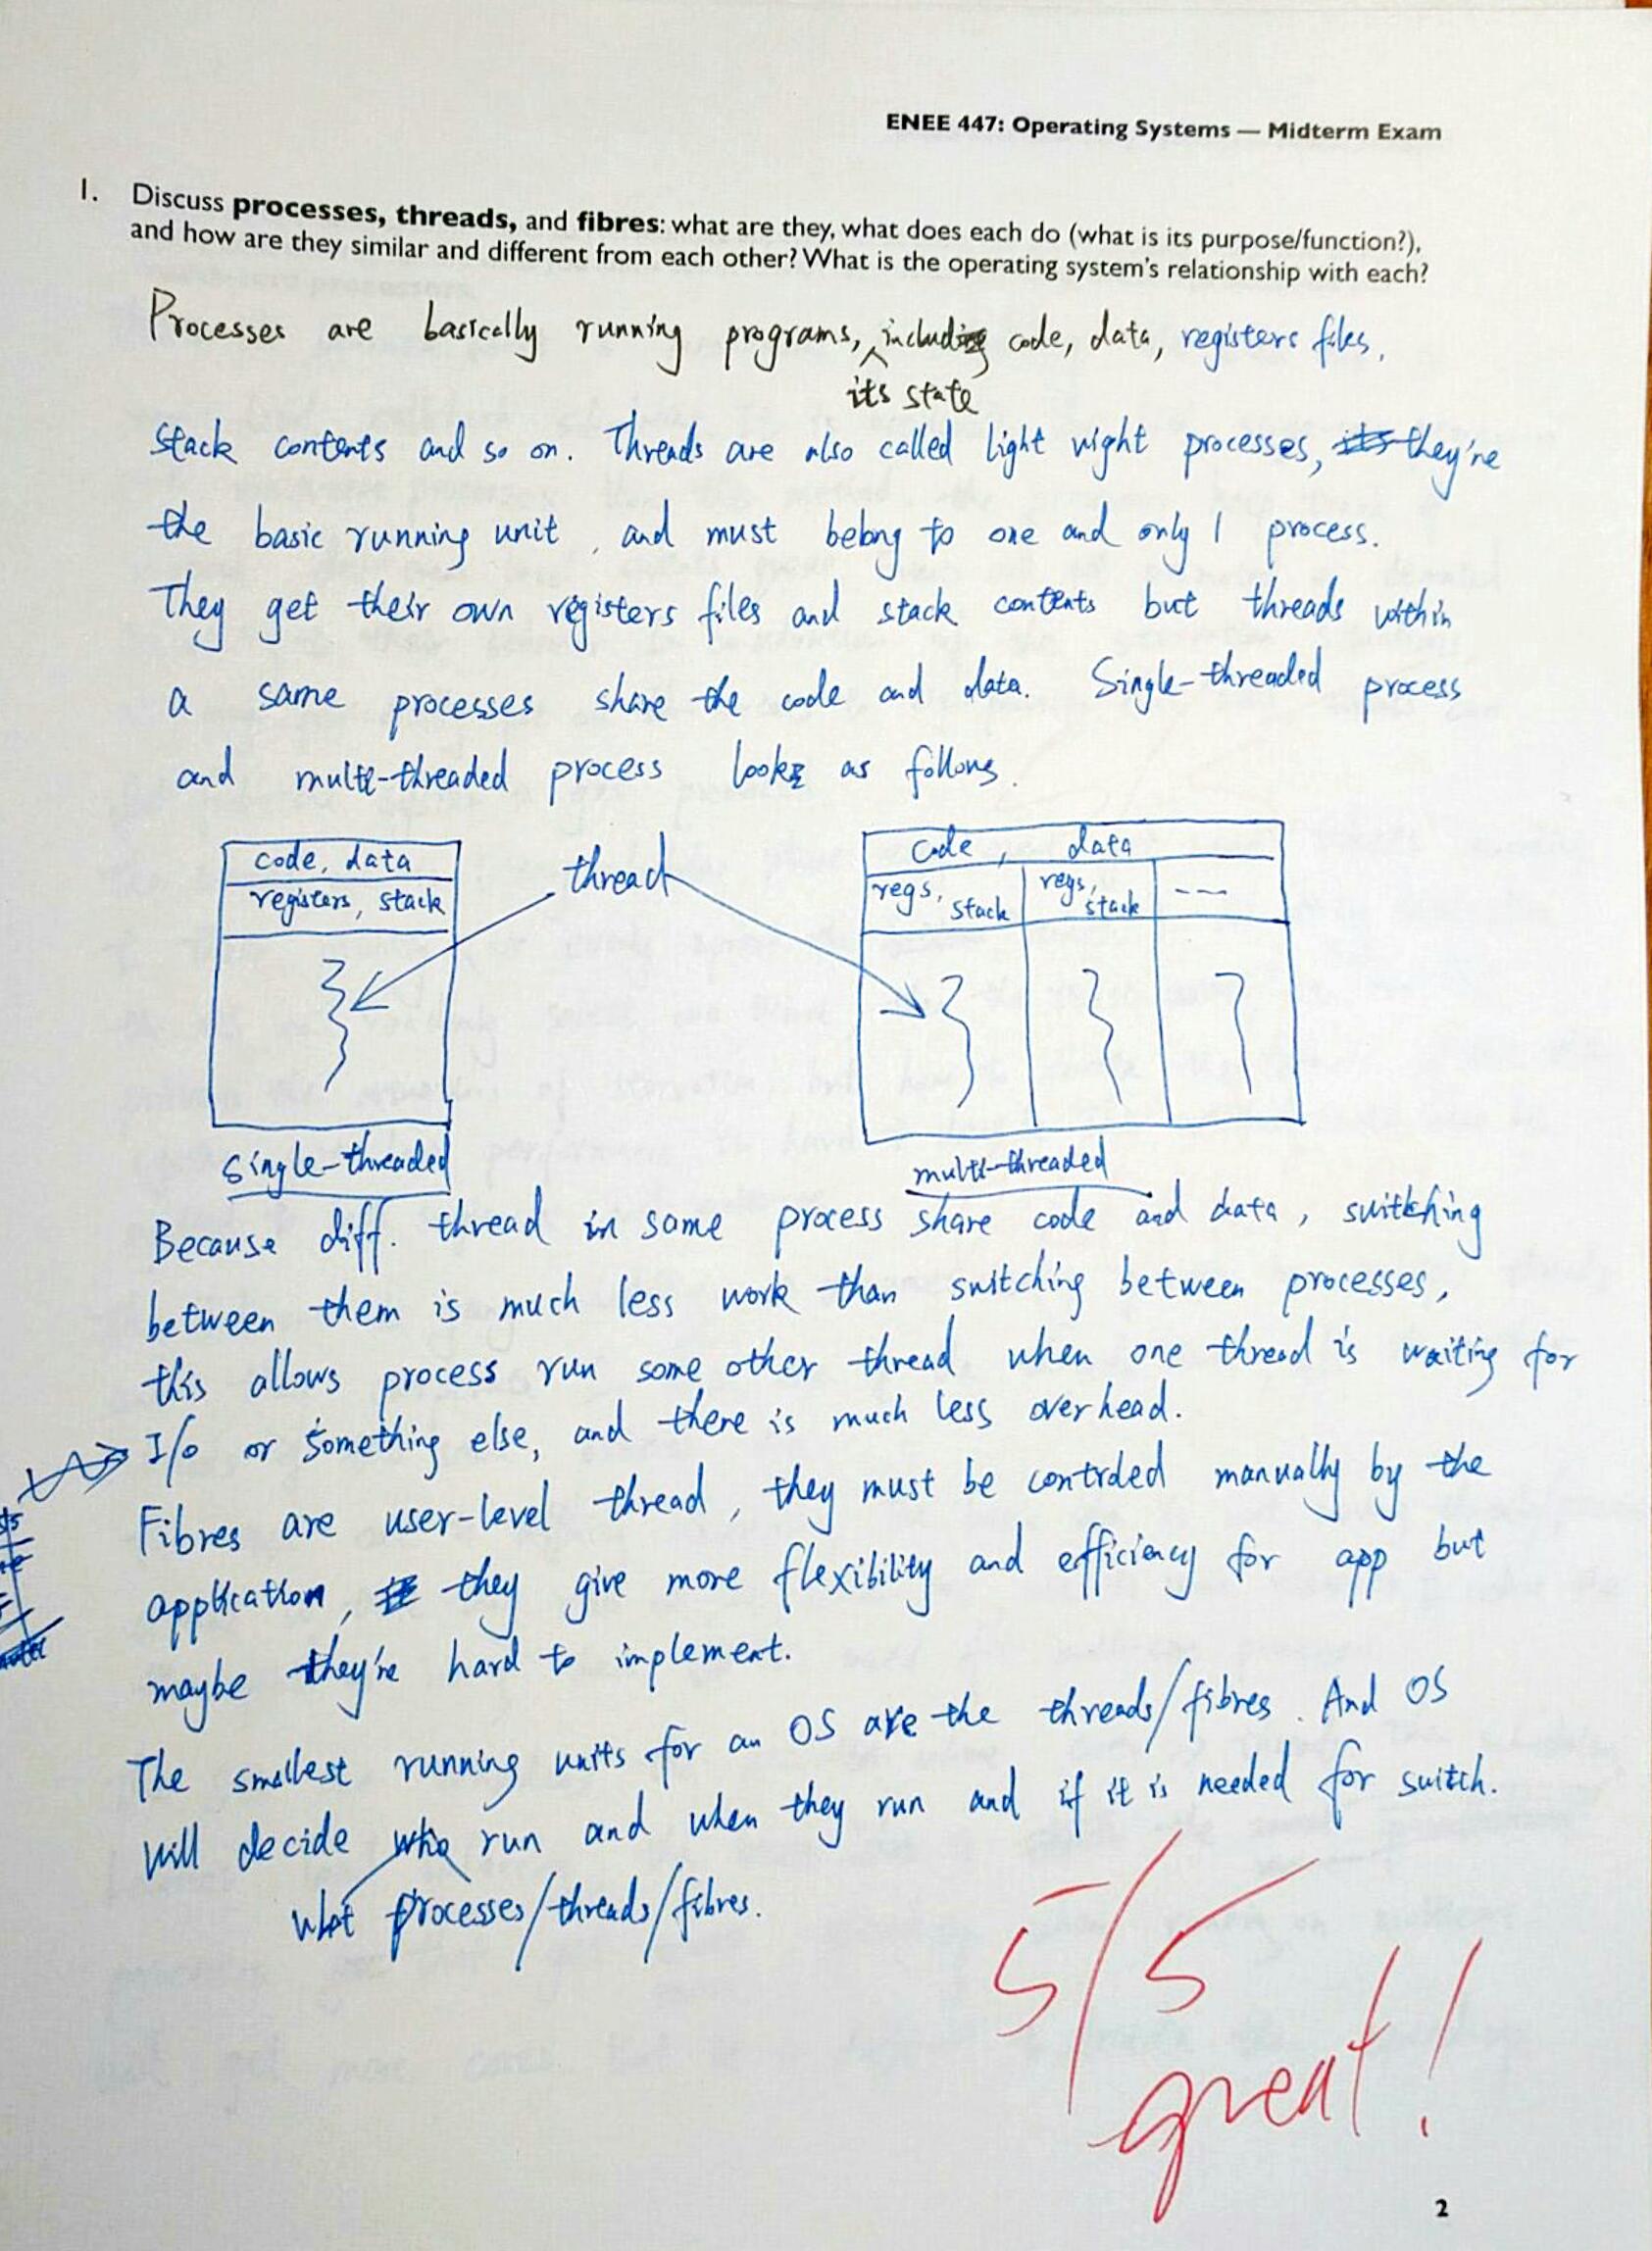 ENEE 447: Operating Systems — Midterm Exam
1. Discuss processes, threads, and fibres: what are they, what does each do (what is its purpose/function?),
and how are they similar and different from each other? What is the operating system's relationship with each?
Processes are basically running programs, including code, data, registers files,
its state
stack contents and so on. Threads are also called light wight processes, its they're
the basic running unit, and must belong to one and only 1 process.
They get their own registers files and stack contents but threads within
a same processes share the code and data. Single-threaded process
and multi-threaded process looks as follows.
code, data
registers, stack
thread
code, data
regs, stack
regs, stack
---
single-threaded
multi-threaded
Because diff. thread in same process share code and data, switching
between them is much less work than switching between processes,
this allows process run some other thread when one thread is waiting for
I/o or something else, and there is much less overhead.
Fibres are user-level thread, they must be controled manually by the
application, they give more flexibility and efficiency for app but
maybe they're hard to implement.
The smallest running units for an OS are the threads/fibres. And OS
will decide who run and when they run and if it is needed for switch.
what processes/threads/fibres.
5/5
great!
2